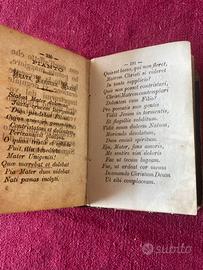 PIANTO
Stabat Mater dolorosa
Dum pendebat Filius
Contristatam et dolentem
Fuit illa benedicta
Mater Unigeniti!
Quae moerebat et dolebat
Nati poenas inclyti.
Quis est homo, qui non fleret,
Matrem Christi si videret
In tanto supplicio?
Quis non posset contristari,
Christi Matrem contemplari
Dolentem cum Filio?
Pro peccatis suae gentis
Vidit Jesum in tormentis,
Et flagellis subditum.
Vidit suum dulcem Natum,
Moriendo desolatum,
Dum emisit spiritum.
Eja, Mater, fons amoris,
Me sentire vim doloris
Fac, ut tecum lugeam.
Fac, ut ardeat cor meum
In amando Christum Deum
Ut sibi complaceam.
subito